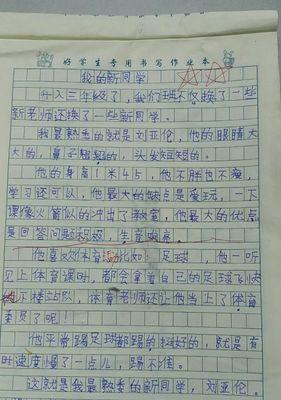 好学生专用书写作业本
我的新同学
升入三年级了，我们班不仅换了一些
新老师还换了一些新同学。
我最熟悉的就是刘亚伦，他的眼睛大
大的，鼻子翘翘的，头发短短的。
他的身高1米45，他不胖也不瘦，
学习还可以，他最大的缺点是爱玩，一下
课像火箭似的冲出了教室，他最大的优点
是回答问题积极，生音响亮。
他喜欢体育比如：足球，他一听
见上体育课时，都会拿着自己的足球飞快
下楼站队，体育老师还让他当上了体育
委员了呢！
他平常踢足球都踢的挺好的，就是有
时速度慢了一点儿，踢不准。
这就是我最熟悉的新同学，刘亚伦。